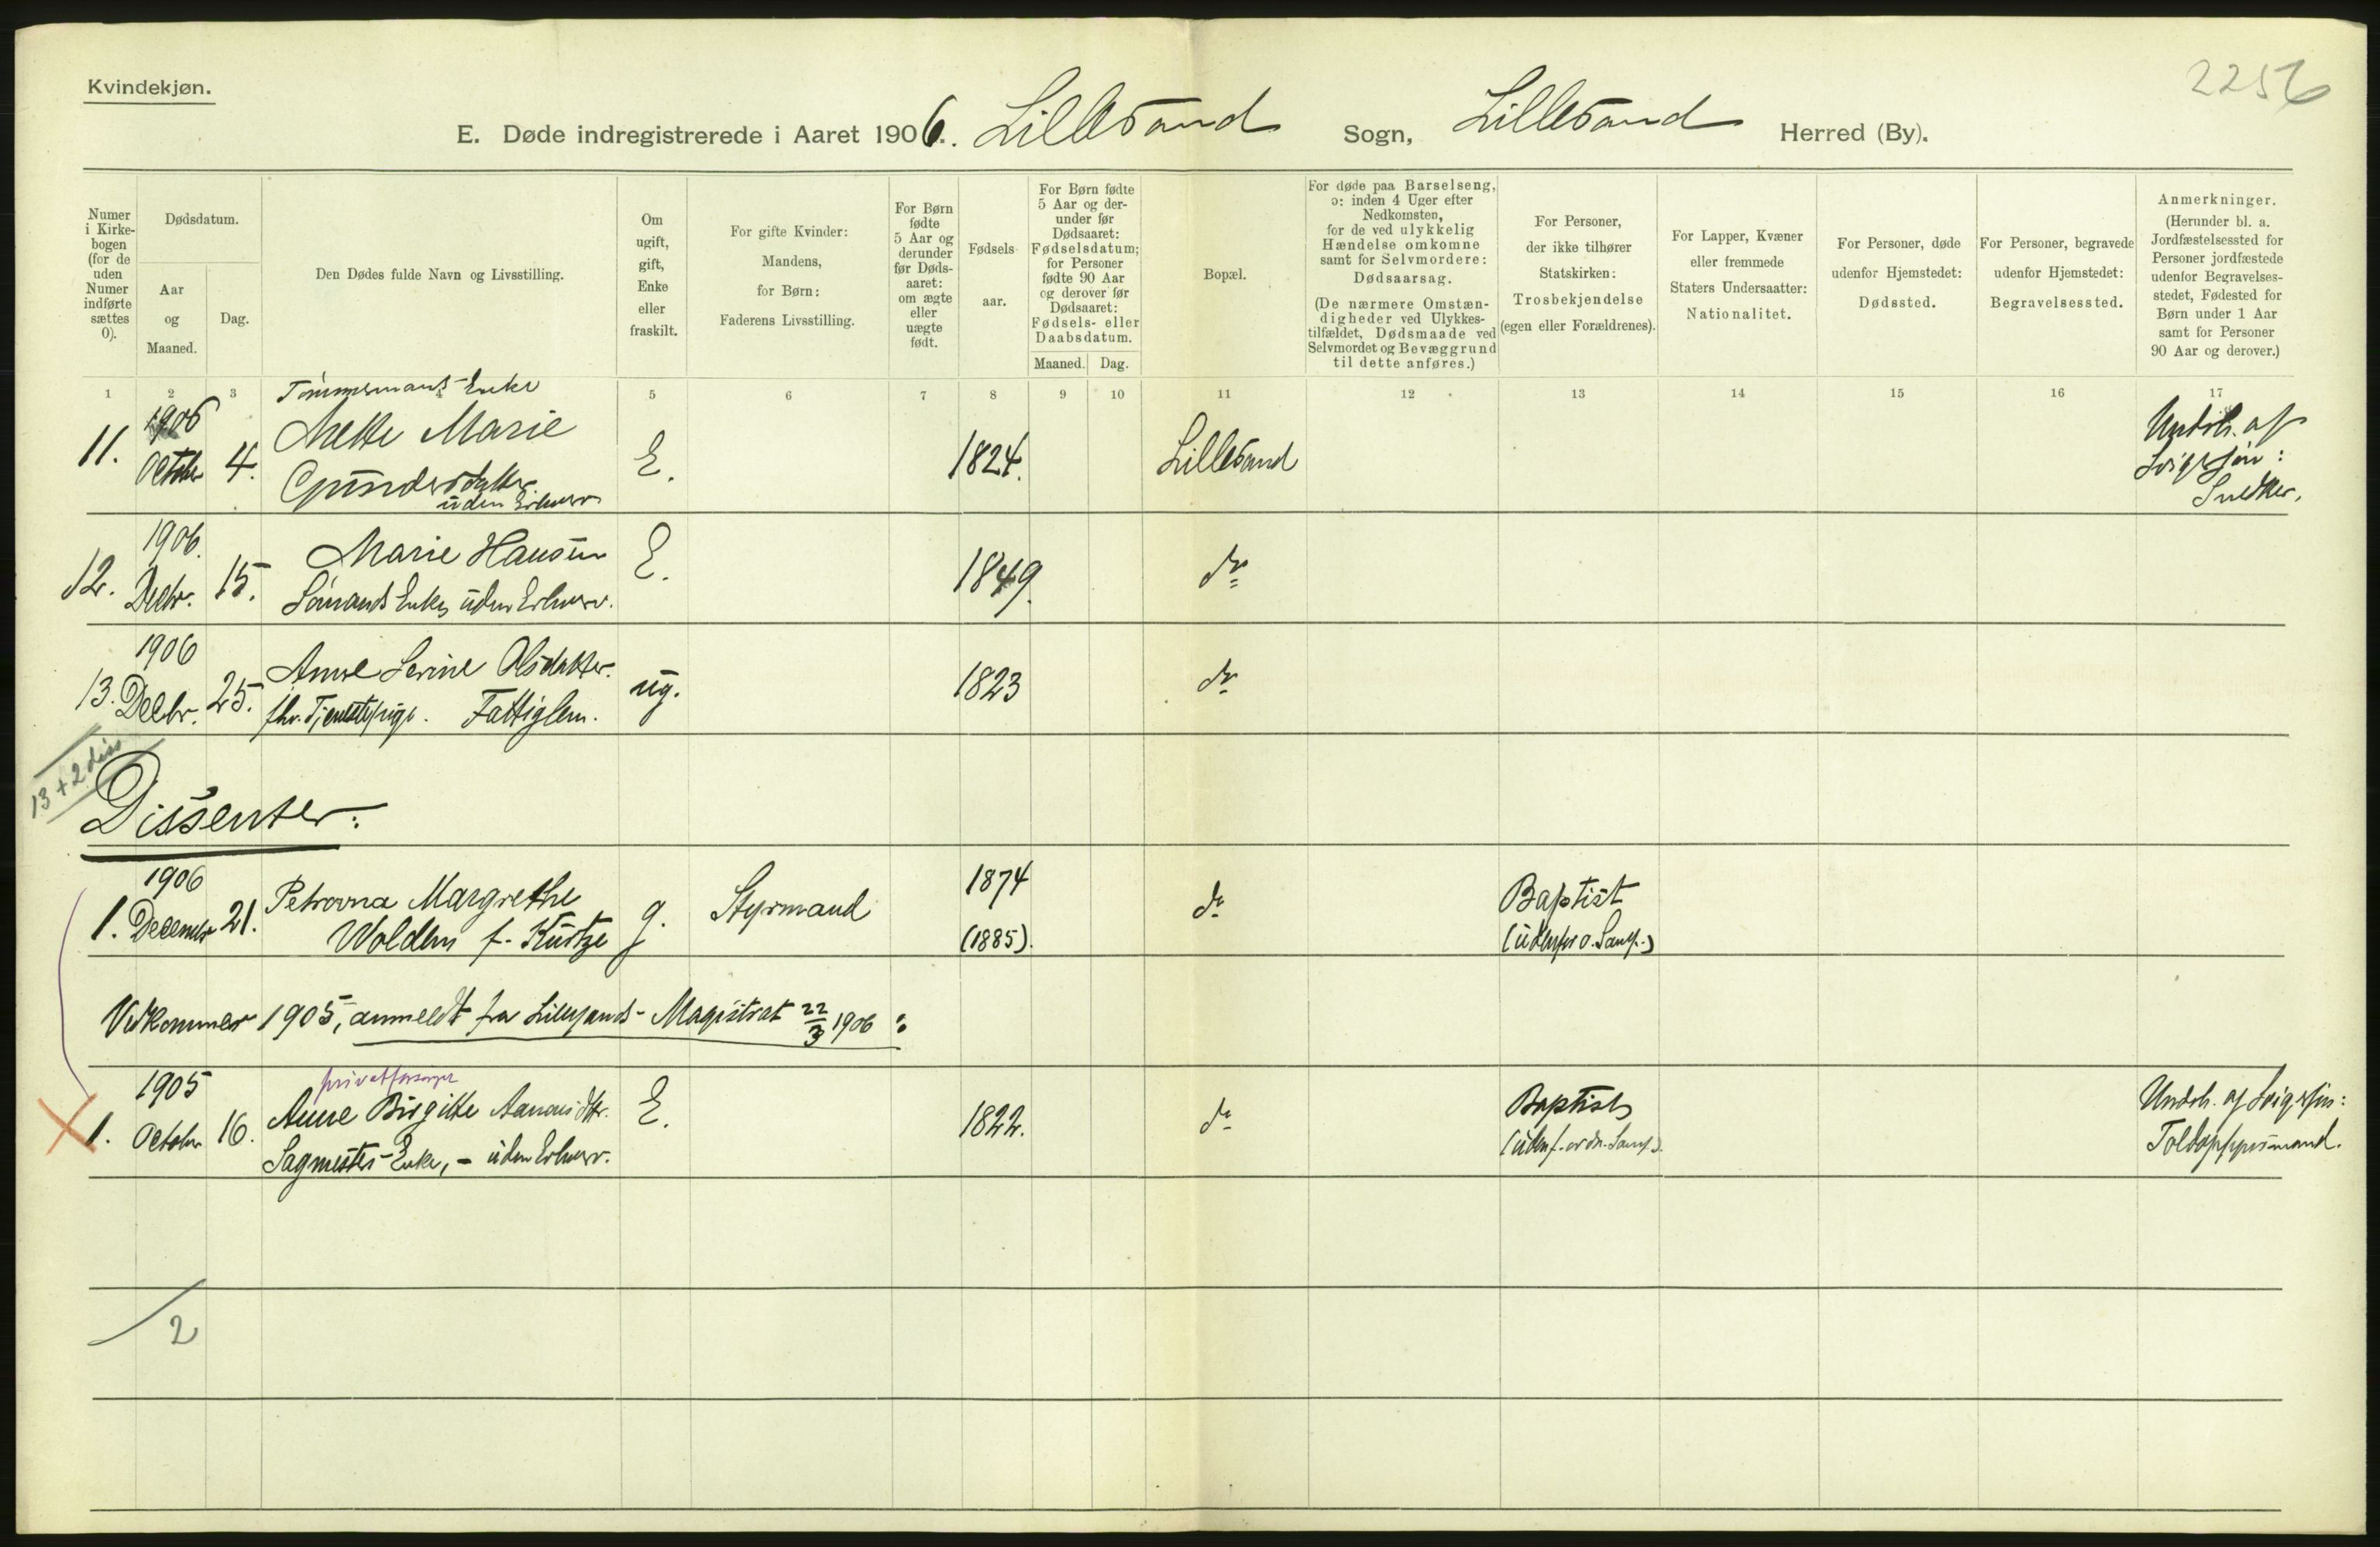 Kvindekjøn.
2256
E. Døde indregistrerede i Aaret 1906. Lillesand Sogn, Lillesand Herred (By).
Numer i Kirke-bogen (for de uden Numer indførte sættes 0).
Dødsdatum.
Aar og Maaned.
Dag.
Den Dødes fulde Navn og Livsstilling.
Om ugift, gift, Enke eller fraskilt.
For gifte Kvinder: Mandens, for Børn: Faderens Livsstilling.
For Børn fødte 5 Aar og derunder før Døds-aaret: om ægte eller uægte født.
Fødsels aar.
For Børn fødte 5 Aar og der-under før Dødsaaret: Fødselsdatum; for Personer fødte 90 Aar og derover før Dødsaaret: Fødsels- eller Daabsdatum.
Maaned. Dag.
Bopæl.
For døde paa Barselseng, ɔ: inden 4 Uger efter Nedkomsten, for de ved ulykkelig Hændelse omkomne samt for Selvmordere: Dødsaarsag.
(De nærmere Omstæn-digheder ved Ulykkes-tilfældet, Dødsmaade ved Selvmordet og Bevæggrund til dette anføres.)
For Personer, der ikke tilhører Statskirken: Trosbekjendelse (egen eller Forældrenes).
For Lapper, Kvæner eller fremmede Staters Undersaatter: Nationalitet.
For Personer, døde udenfor Hjemstedet: Dødssted.
For Personer, begravede udenfor Hjemstedet: Begravelsessted.
Anmerkninger. (Herunder bl. a. Jordfæstelsessted for Personer jordfæstede udenfor Begravelses-stedet, Fødested for Børn under 1 Aar samt for Personer 90 Aar og derover.)
1 2 3 4 5 6 7 8 9 10 11 12 13 14 15 16 17
Tømmermands Enke
11. 1906 Octobr 4. Mette Marie
Gundersdatter
uden Erhverv
E. 1824. Lillesand
Undh. af
Svigersøn:
Snedker.
12. 1906. Decbr. 15. Marie Hansen
Sømands Enke, uden Erhverv.
E. 1849. do
13. 1906 Decbr. 25. Anne Serine Olsdatter.
fhv. Tjenestepige. Fattiglem.
ug. 1823 do
13 + 2 diss
Dissenter:
1. 1906 Decembr 21. Petrovna Margrethe
Wolden f. Kurtze
g. Styrmand 1874
(1885).
do Baptist
(udenfor o. Samf.)
Vedkommer 1905, anmeldt fra Lillesands Magistrat 22/3 1906:
privatforsørget
1. 1905 October 16. Anne Birgitte Aanonsdtr.
Sagmester Enke, - uden Erhverv.
E. 1822. do
Baptist
(udenf. ordn. Samf.).
Undh. af Svigersøn:
Toldopsynsmand.
2